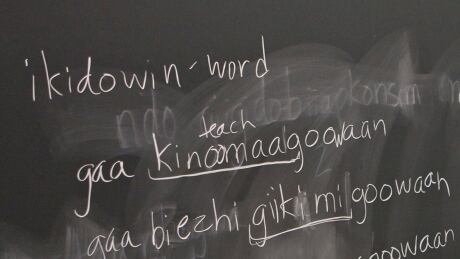 ikidowin - word
teach
gaa kinoomaagoowaan
gaa biezhi giiki migoowaan
goowaan